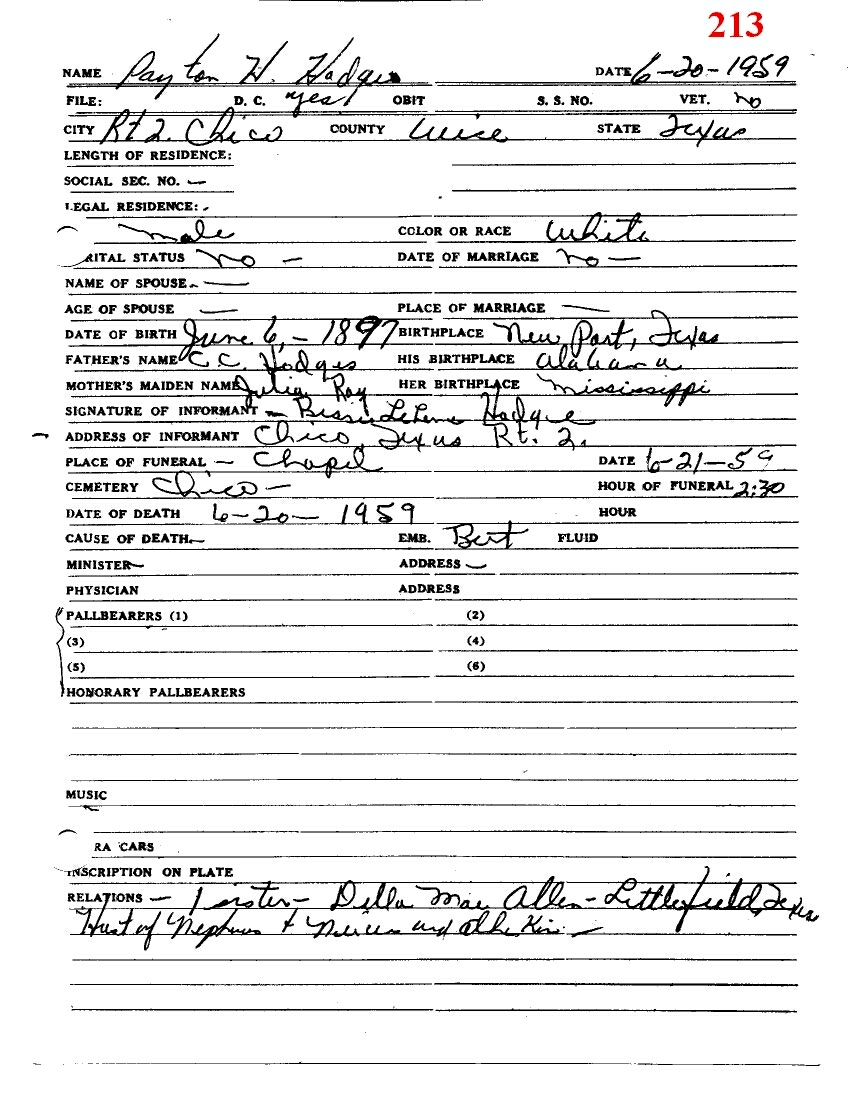 213
NAME Payton H. Hodges DATE 6-20-1959
FILE: D. C. yes OBIT S. S. NO. VET. no
CITY Rt 2. Chico COUNTY Wise STATE Texas
LENGTH OF RESIDENCE:
SOCIAL SEC. NO. —
LEGAL RESIDENCE: -
male COLOR OR RACE White
RITAL STATUS no — DATE OF MARRIAGE no —
NAME OF SPOUSE —
AGE OF SPOUSE — PLACE OF MARRIAGE —
DATE OF BIRTH June 6, - 1897 BIRTHPLACE New Port, Texas
FATHER'S NAME C. C. Hodges HIS BIRTHPLACE Alabama
MOTHER'S MAIDEN NAME Julia Ray HER BIRTHPLACE Mississippi
SIGNATURE OF INFORMANT — Hodge
ADDRESS OF INFORMANT Chico, Texas Rt. 2.
PLACE OF FUNERAL — Chapel DATE 6-21-59
CEMETERY Chico — HOUR OF FUNERAL 2:30
DATE OF DEATH 6-20-1959 HOUR
CAUSE OF DEATH — EMB. Bert FLUID
MINISTER — ADDRESS —
PHYSICIAN ADDRESS
PALLBEARERS (1) (2)
(3) (4)
(5) (6)
HONORARY PALLBEARERS
MUSIC
RA CARS
INSCRIPTION ON PLATE
RELATIONS — 1 sister - Della Mae Allen - Littlefield, Texas
Host of Nephews + Nieces and other Kin —